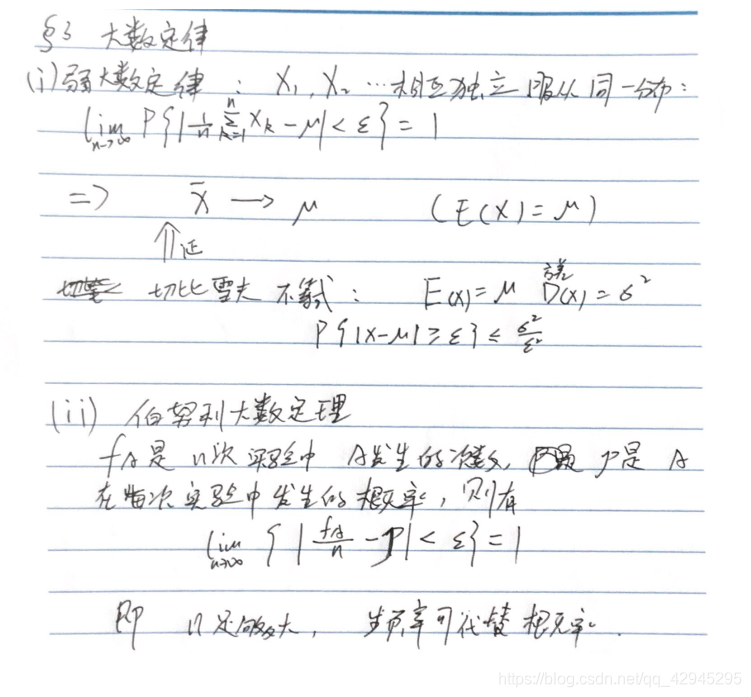 §3 大数定律
(i) 弱大数定律 : X₁, X₂ … 相互独立 服从同一分布:
lim n→∞ P{|1/n Σₖ₌₁ⁿ Xₖ - μ| < ε} = 1
=> X̄ → μ (E(X) = μ)
⇑证
切比雪夫 不等式 : E(X) = μ 方差 D(X) = σ²
P{|X-μ| ≥ ε} ≤ σ²/ε²
(ii) 伯努利大数定理
fA是 n次 实验中 A发生的次数, p是 A
在每次实验中发生的概率, 则有
lim n→∞ { | fA/n - p | < ε} = 1
即 n足够大, 频率可代替概率.
https://blog.csdn.net/qq_42945295